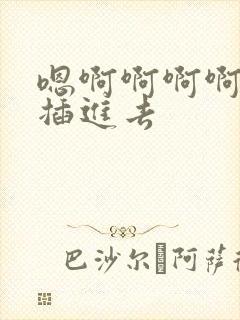 嗯啊啊啊啊
插進去
巴沙尔 阿萨